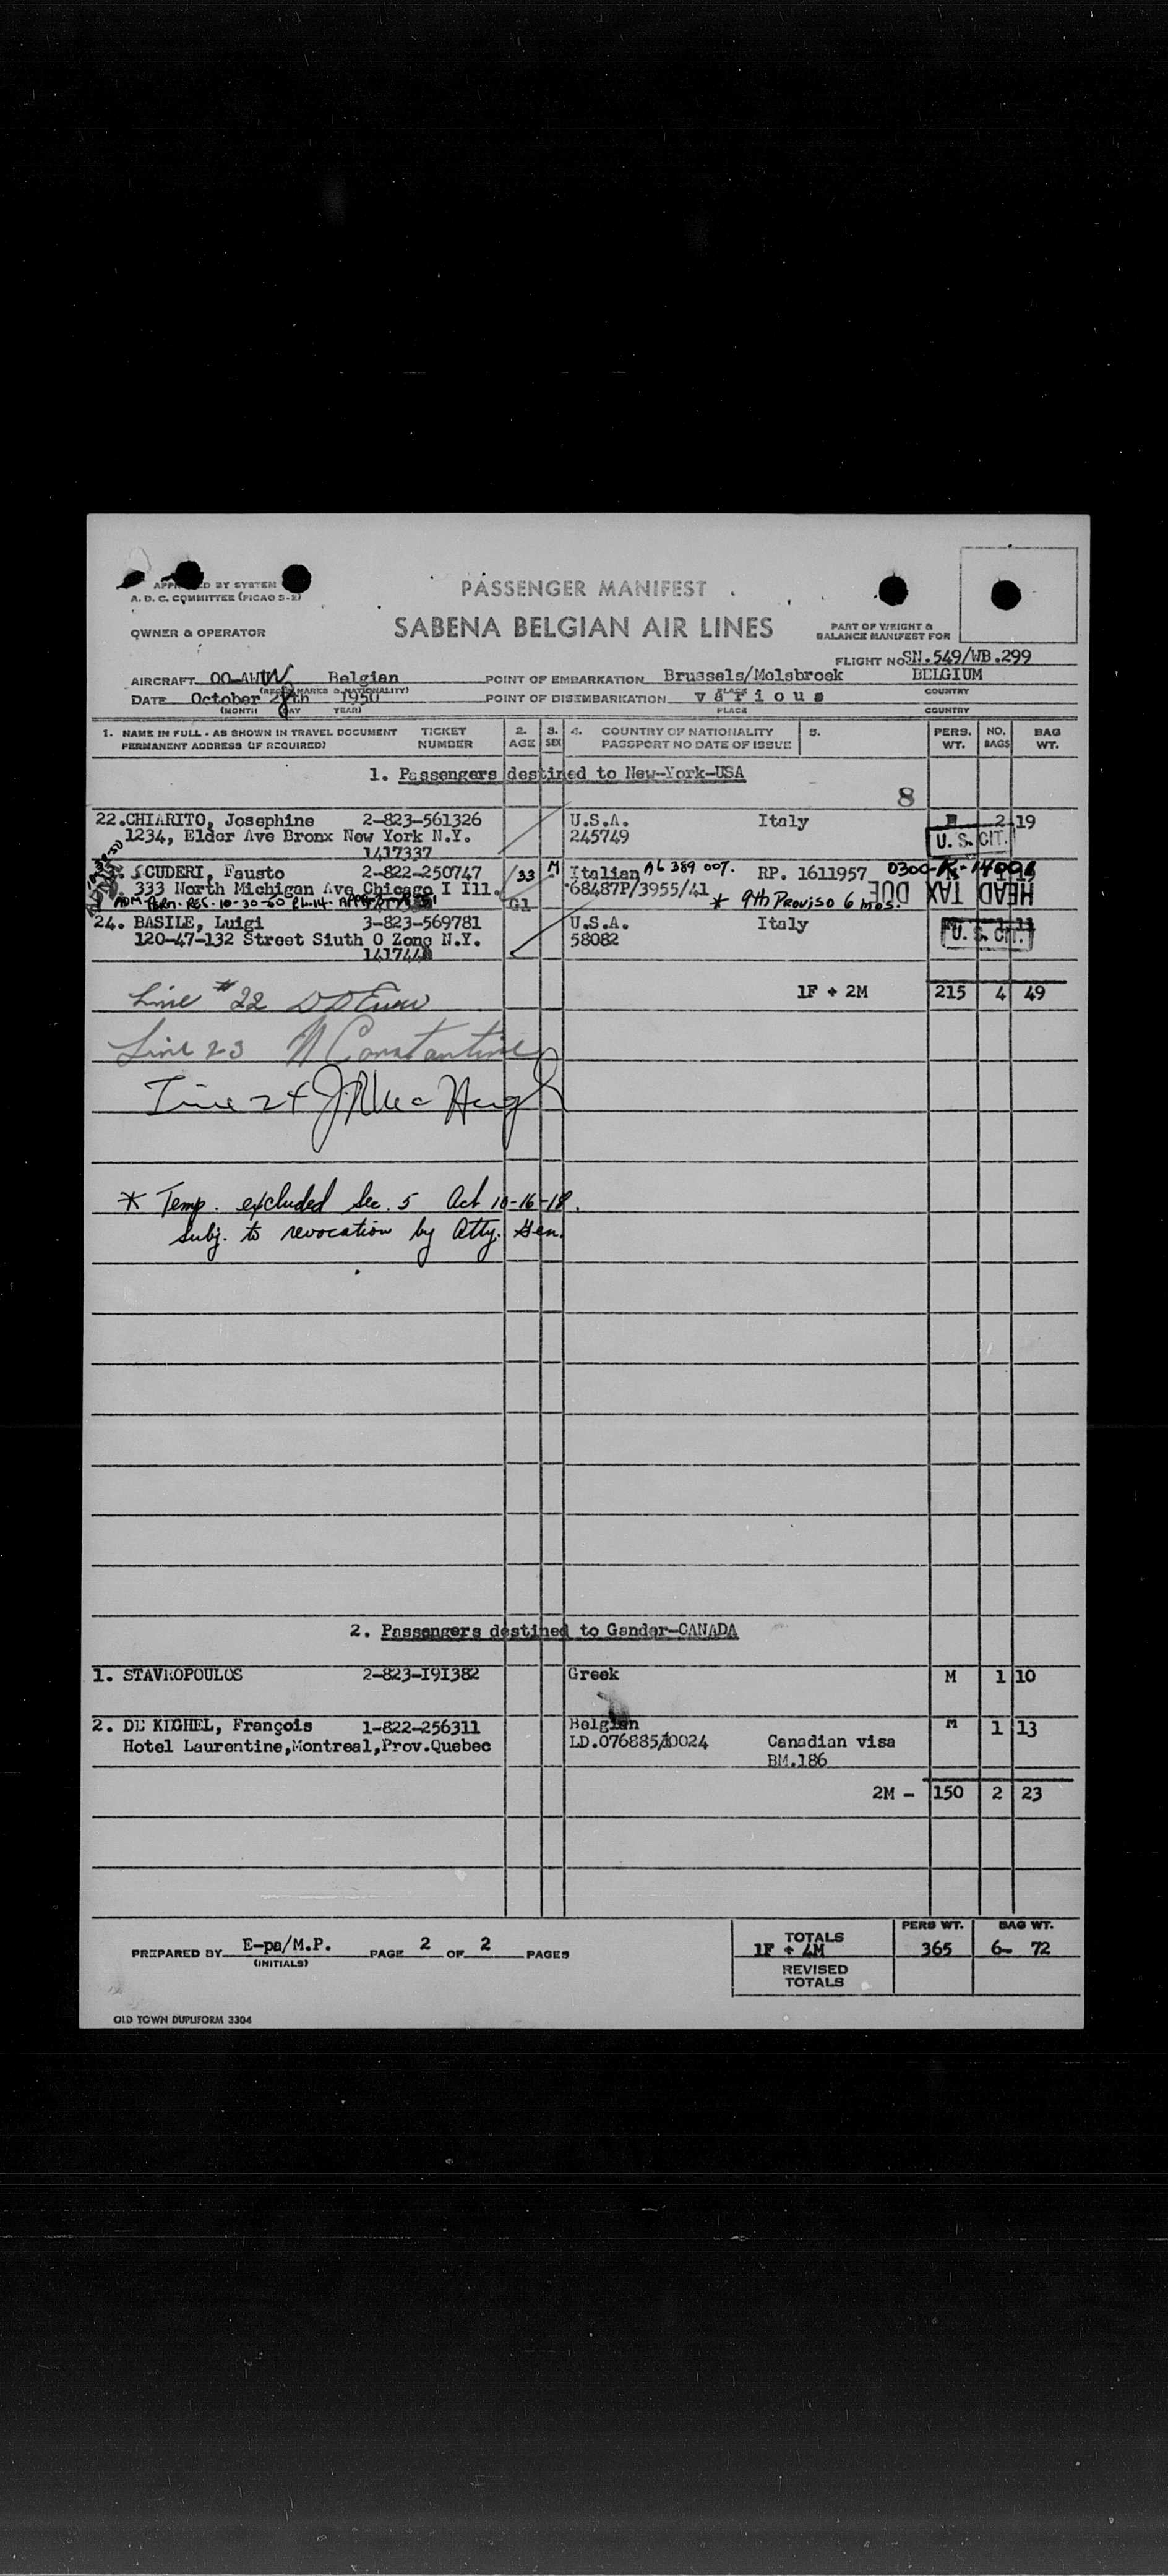 APPROVED BY SYSTEM
A. D. C. COMMITTEE (PICAO S-2)
PASSENGER MANIFEST
OWNER & OPERATOR
SABENA BELGIAN AIR LINES
PART OF WEIGHT &
BALANCE MANIFEST FOR
FLIGHT NO SN.549/WB.299
AIRCRAFT OO-AWW Belgian POINT OF EMBARKATION Brussels/Melsbroek BELGIUM
(REG. MARKS & NATIONALITY) PLACE COUNTRY
DATE October 28th 1950 POINT OF DISEMBARKATION various
(MONTH DAY YEAR) PLACE COUNTRY
1. NAME IN FULL - AS SHOWN IN TRAVEL DOCUMENT TICKET 2. 3. 4. COUNTRY OF NATIONALITY 5. PERS. NO. BAG
PERMANENT ADDRESS (IF REQUIRED) NUMBER AGE SEX PASSPORT NO DATE OF ISSUE WT. BAGS WT.
1. Passengers destined to New-York-USA
8
22. CHIARITO, Josephine 2-823-561326 U.S.A. Italy F 2 19
1234, Elder Ave Bronx New York N.Y. 245749 U. S. CIT.
1417337
SCUDERI, Fausto 2-822-250747 33 M Italian A6 389 007. RP. 1611957 0300-K-14002
333 North Michigan Ave Chicago I Ill. 68487P/3955/41 HEAD TAX DUE
ADM. PERM. RES. 10-30-50 G1 * 9th Proviso 6 mos.
24. BASILE, Luigi 3-823-569781 U.S.A. Italy 11
120-47-132 Street Siuth O Zone N.Y. 58082 U. S. CIT.
Line #22
1F + 2M 215 4 49
Line 23 N Constantine
Line 24
* Temp. excluded Sec. 5 Act 10-16-18.
Subj. to revocation by Atty. Gen.
2. Passengers destined to Gander-CANADA
1. STAVROPOULOS 2-823-191382 Greek M 1 10
2. DE KIGHEL, François 1-822-256311 Belgian M 1 13
Hotel Laurentine,Montreal,Prov.Quebec LD.076885/10024 Canadian visa
BM.186
2M - 150 2 23
PERS WT. BAG WT.
PREPARED BY E-pa/M.P. PAGE 2 OF 2 PAGES
(INITIALS)
TOTALS
1F + 4M 365 6- 72
REVISED
TOTALS
OLD TOWN DUPLIFORM 3304